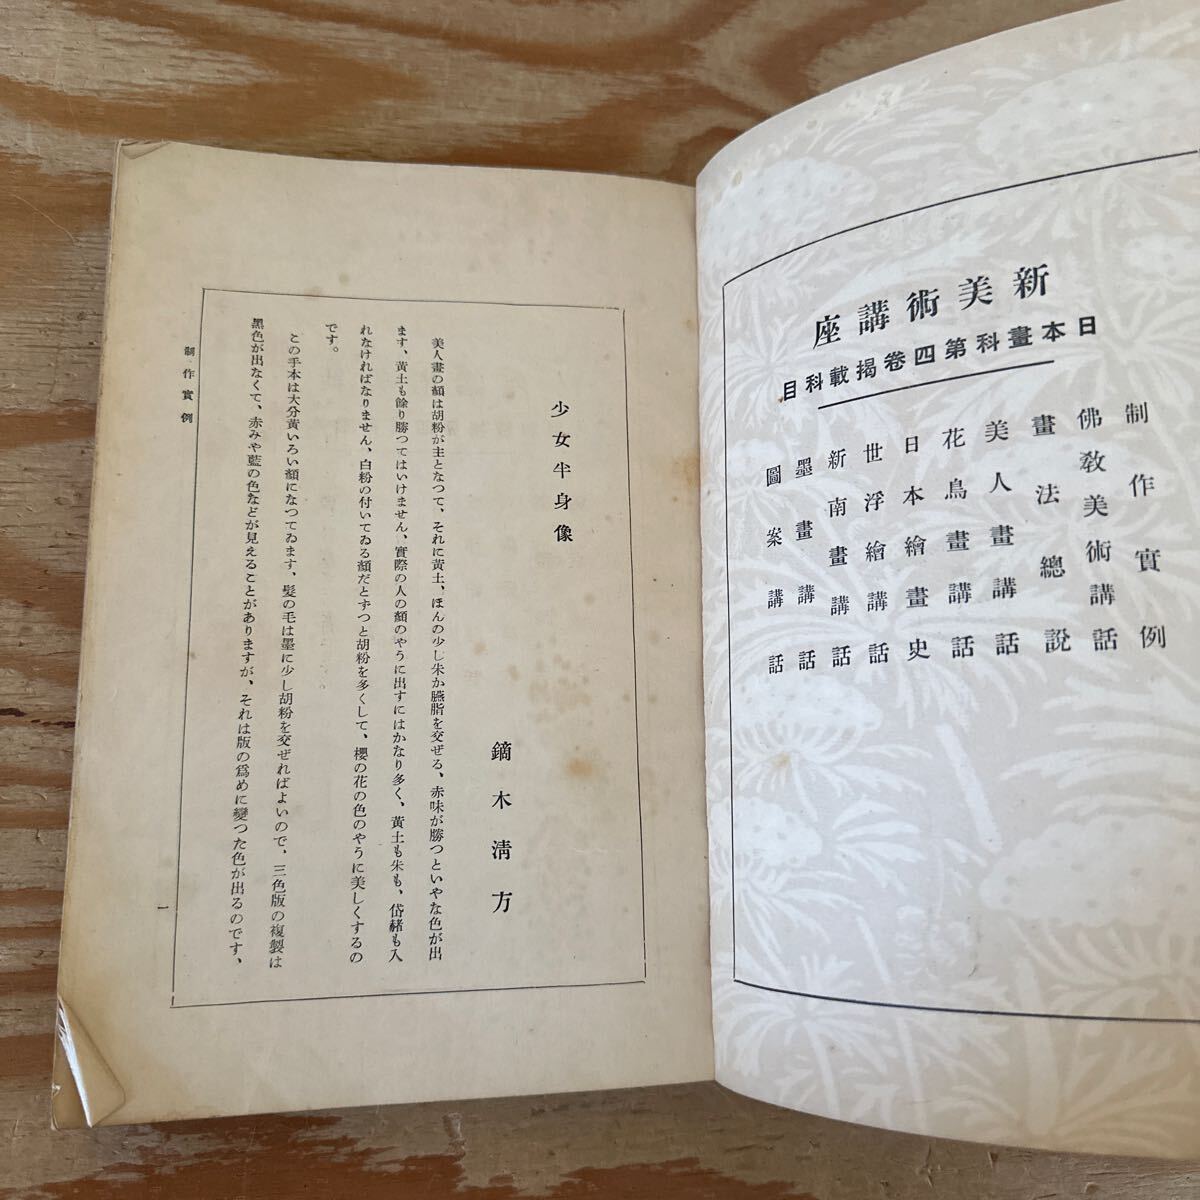 新美術講座
日本畫科第四卷揭載科目
制作實例
佛敎美術講話
畫法總說
美人畫講話
花鳥畫講話
日本繪畫史
世浮繪講話
新南畫講話
墨畫講話
圖案講話
少女半身像
鏑木淸方
美人畫の顏は胡粉が主となつて、それに黃土、ほんの少し朱か臙脂を交ぜる、赤味が勝つといやな色が出
ます、黃土も餘り勝つてはいけません、實際の人の顏のやうに出すにはかなり多く、黃土も朱も、岱赭も入
れなければなりません、白粉の付いてゐる顏だとずつと胡粉を多くして、櫻の花の色のやうに美しくするの
です。
この手本は大分黃いろい顏になつてゐます、髮の毛は墨に少し胡粉を交ぜればよいので、三色版の複製は
黑色が出なくて、赤みや藍の色などが見えることがありますが、それは版の爲めに變つた色が出るのです、
制作實例
一